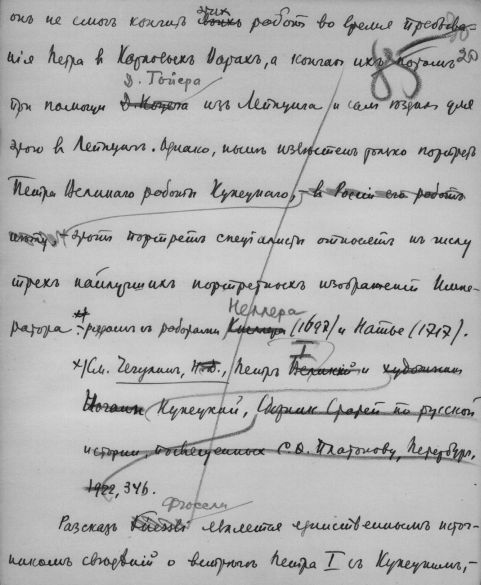 онъ не смогъ кончить этихъ своихъ работъ во время пребыва-
нія Петра в Карловыхъ Варахъ, а кончалъ ихъ потомъ
Д. Гойера
при помощи изъ Лейпцига и самъ ѣздилъ для
этого в Лейпцигъ. Однако, нынѣ извѣстенъ только портретъ
Петра Великаго работы Купецкаго, - в Россіи его работъ
этотъ портретъ спеціалисты относятъ къ числу
трехъ наилучшихъ портретныхъ изображеній Импе-
Неллера
ратора х) рядомъ съ работами Кнеллера (1697) и Натье (1717).
I
х) См. Чечулинъ, Н.Д., Петръ Великій и художникъ
Іоганъ Купецкій, Сборникъ Статей по русской
исторіи, посвященныхъ С.Ѳ. Платонову, Петербург,
1922, 346.
Фюссли
Разсказъ является единственнымъ источ-
никомъ свѣдѣній о встрѣчахъ Петра I съ Купецкимъ, -